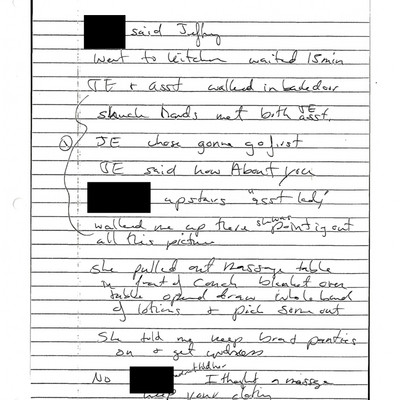 said Jeffrey
went to kitchen waited 15 min
JE + asst walked in backdoor
shuck hands met both JE asst.
JE chose gonna go first
JE said how About you
upstairs "asst lady"
walked me up there she was pointing out
all this picture
she pulled out massage table
in front of couch blanket over
table opened draw whole bunch
of lotions + pick some out
She told me keep bra + panties
on + get undress
No I thought a massage
keep your clothing